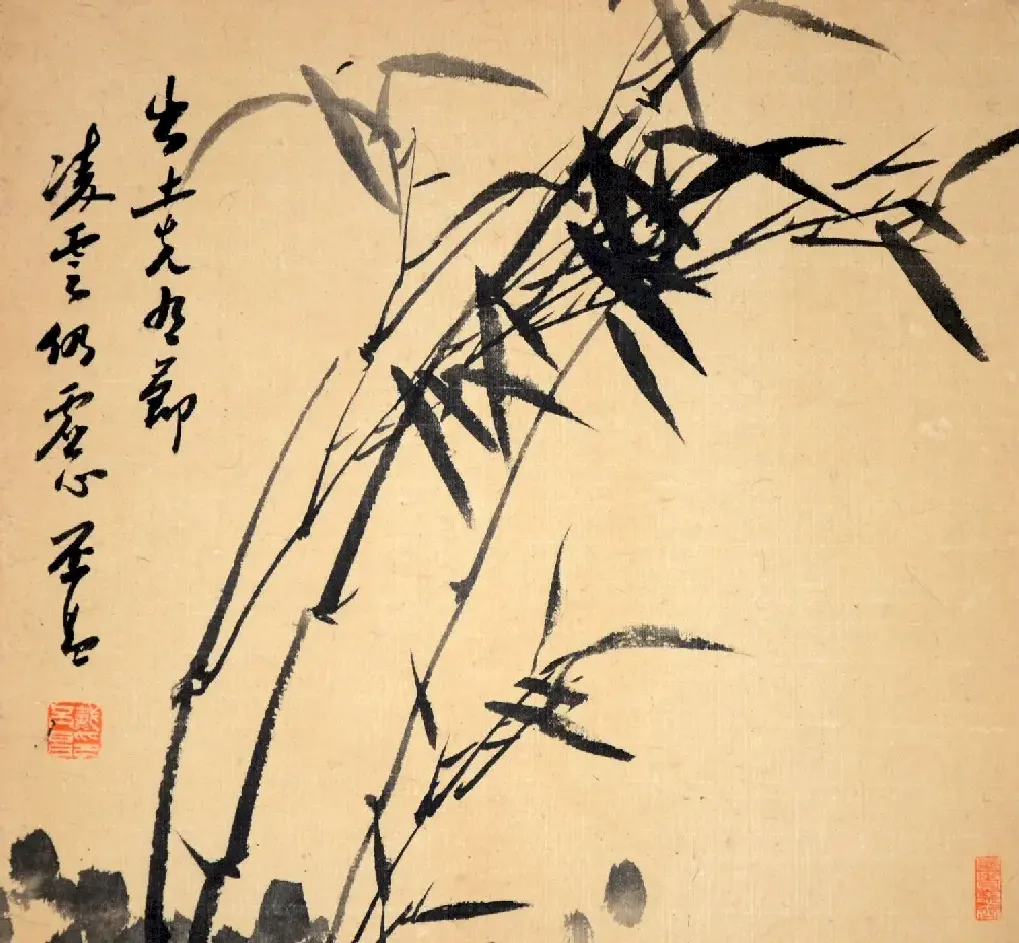 出土先有節
凌雲仍虛心